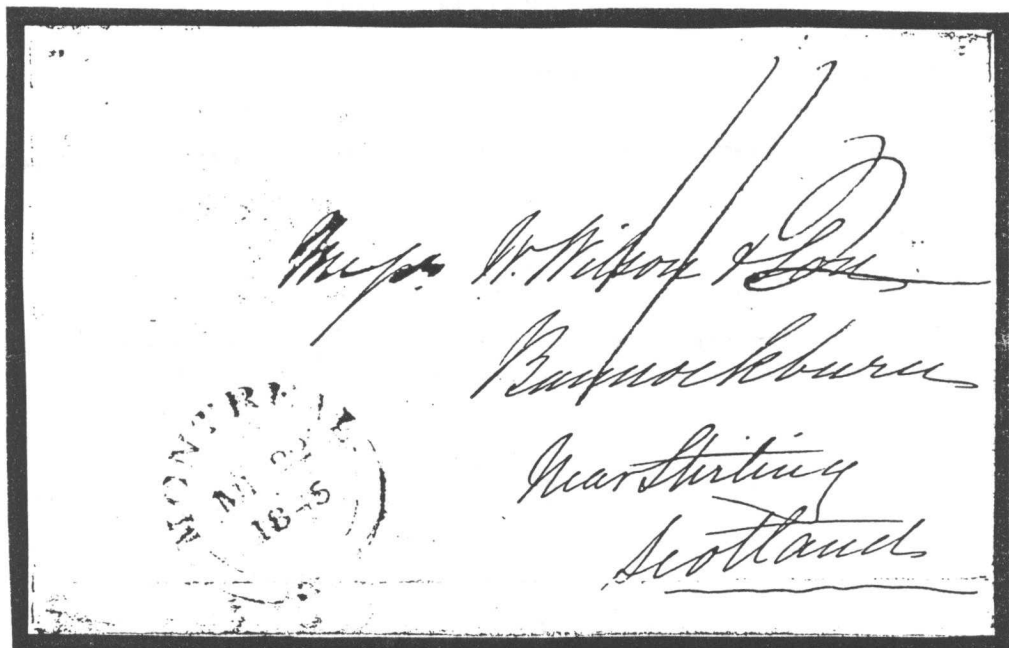 Messrs. W. Wilson & Son
Bannockburn
Near Stirling
Scotland
MONTREAL
22